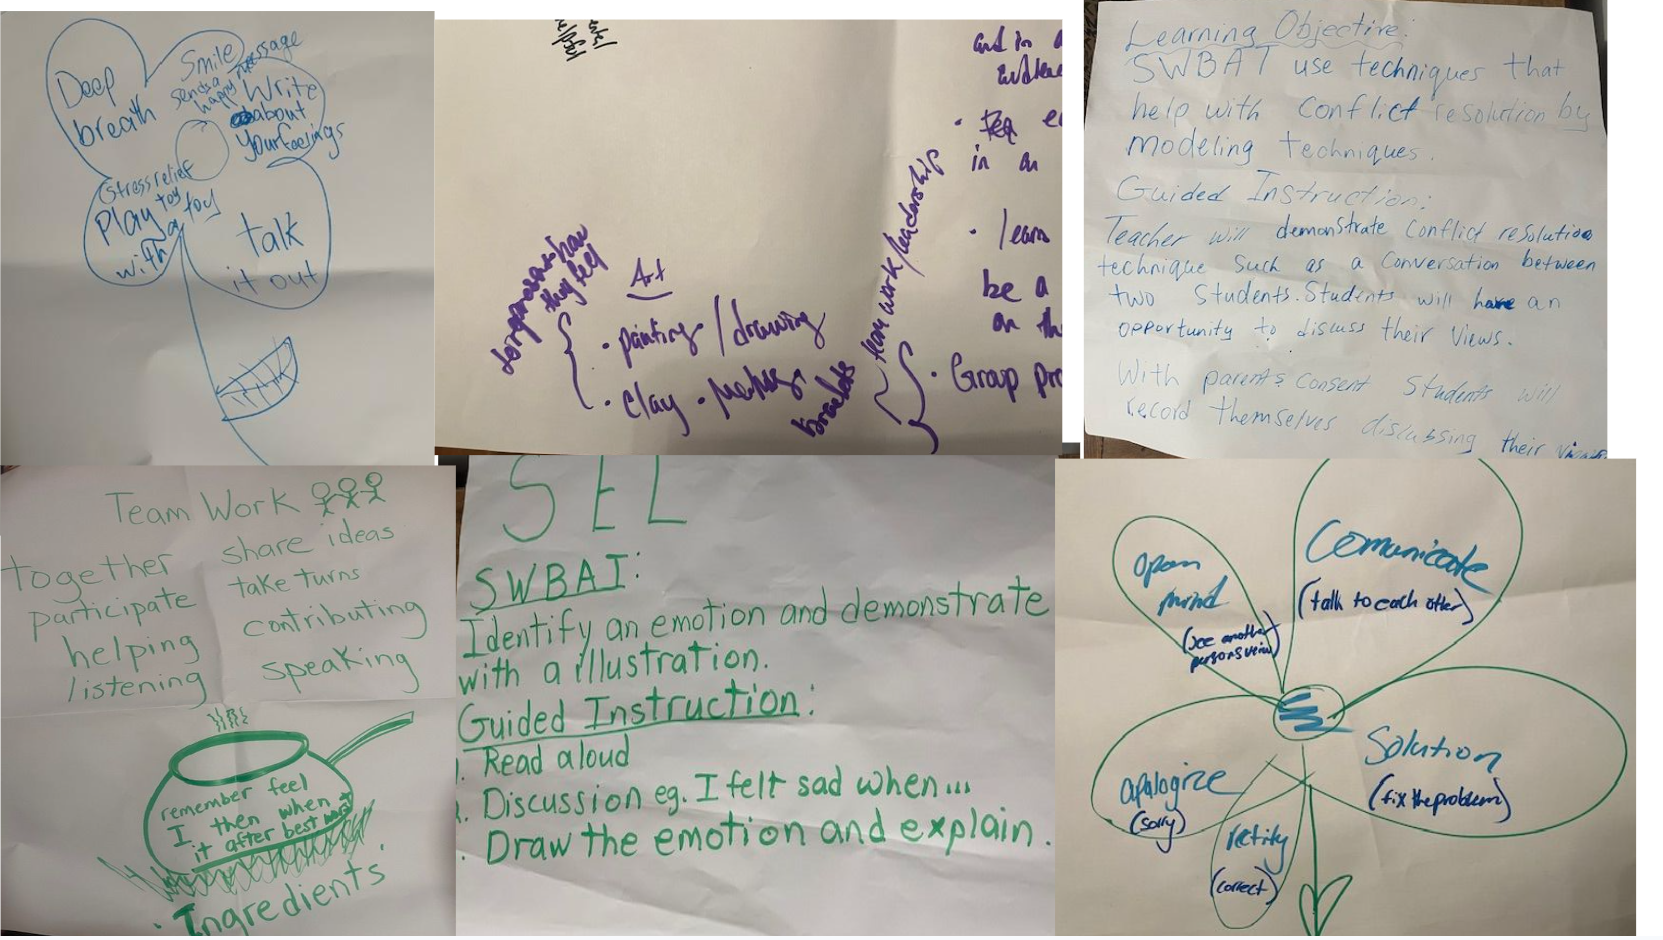 Deep
breath
Smile
sends a
happy
message
Write
about
your feelings
Stress relief
toy
Play
with
a toy
talk
it out
they feel
Art
• painting / drawing
• clay •
bracelets
team work/leadership
and in a
• 
in an
• learn
be a
on th
• Group pro
Learning Objective:
SWBAT use techniques that
help with conflict resolution by
modeling techniques.
Guided Instruction:
Teacher will demonstrate conflict resolution
technique such as a conversation between
two students. Students will have an
opportunity to discuss their views.
With parents consent students will
record themselves discussing their views
Team Work
together
participate
helping
listening
share ideas
take turns
contributing
speaking
remember feel
I then when
it after best
Ingredients
SEL
SWBAT:
Identify an emotion and demonstrate
with a illustration.
Guided Instruction:
. Read aloud
. Discussion eg. I felt sad when...
. Draw the emotion and explain.
Open
mind
(see another
persons view)
Comunicate
(talk to each other)
Solution
(fix the problem)
apologize
(sorry)
rectify
(correct)